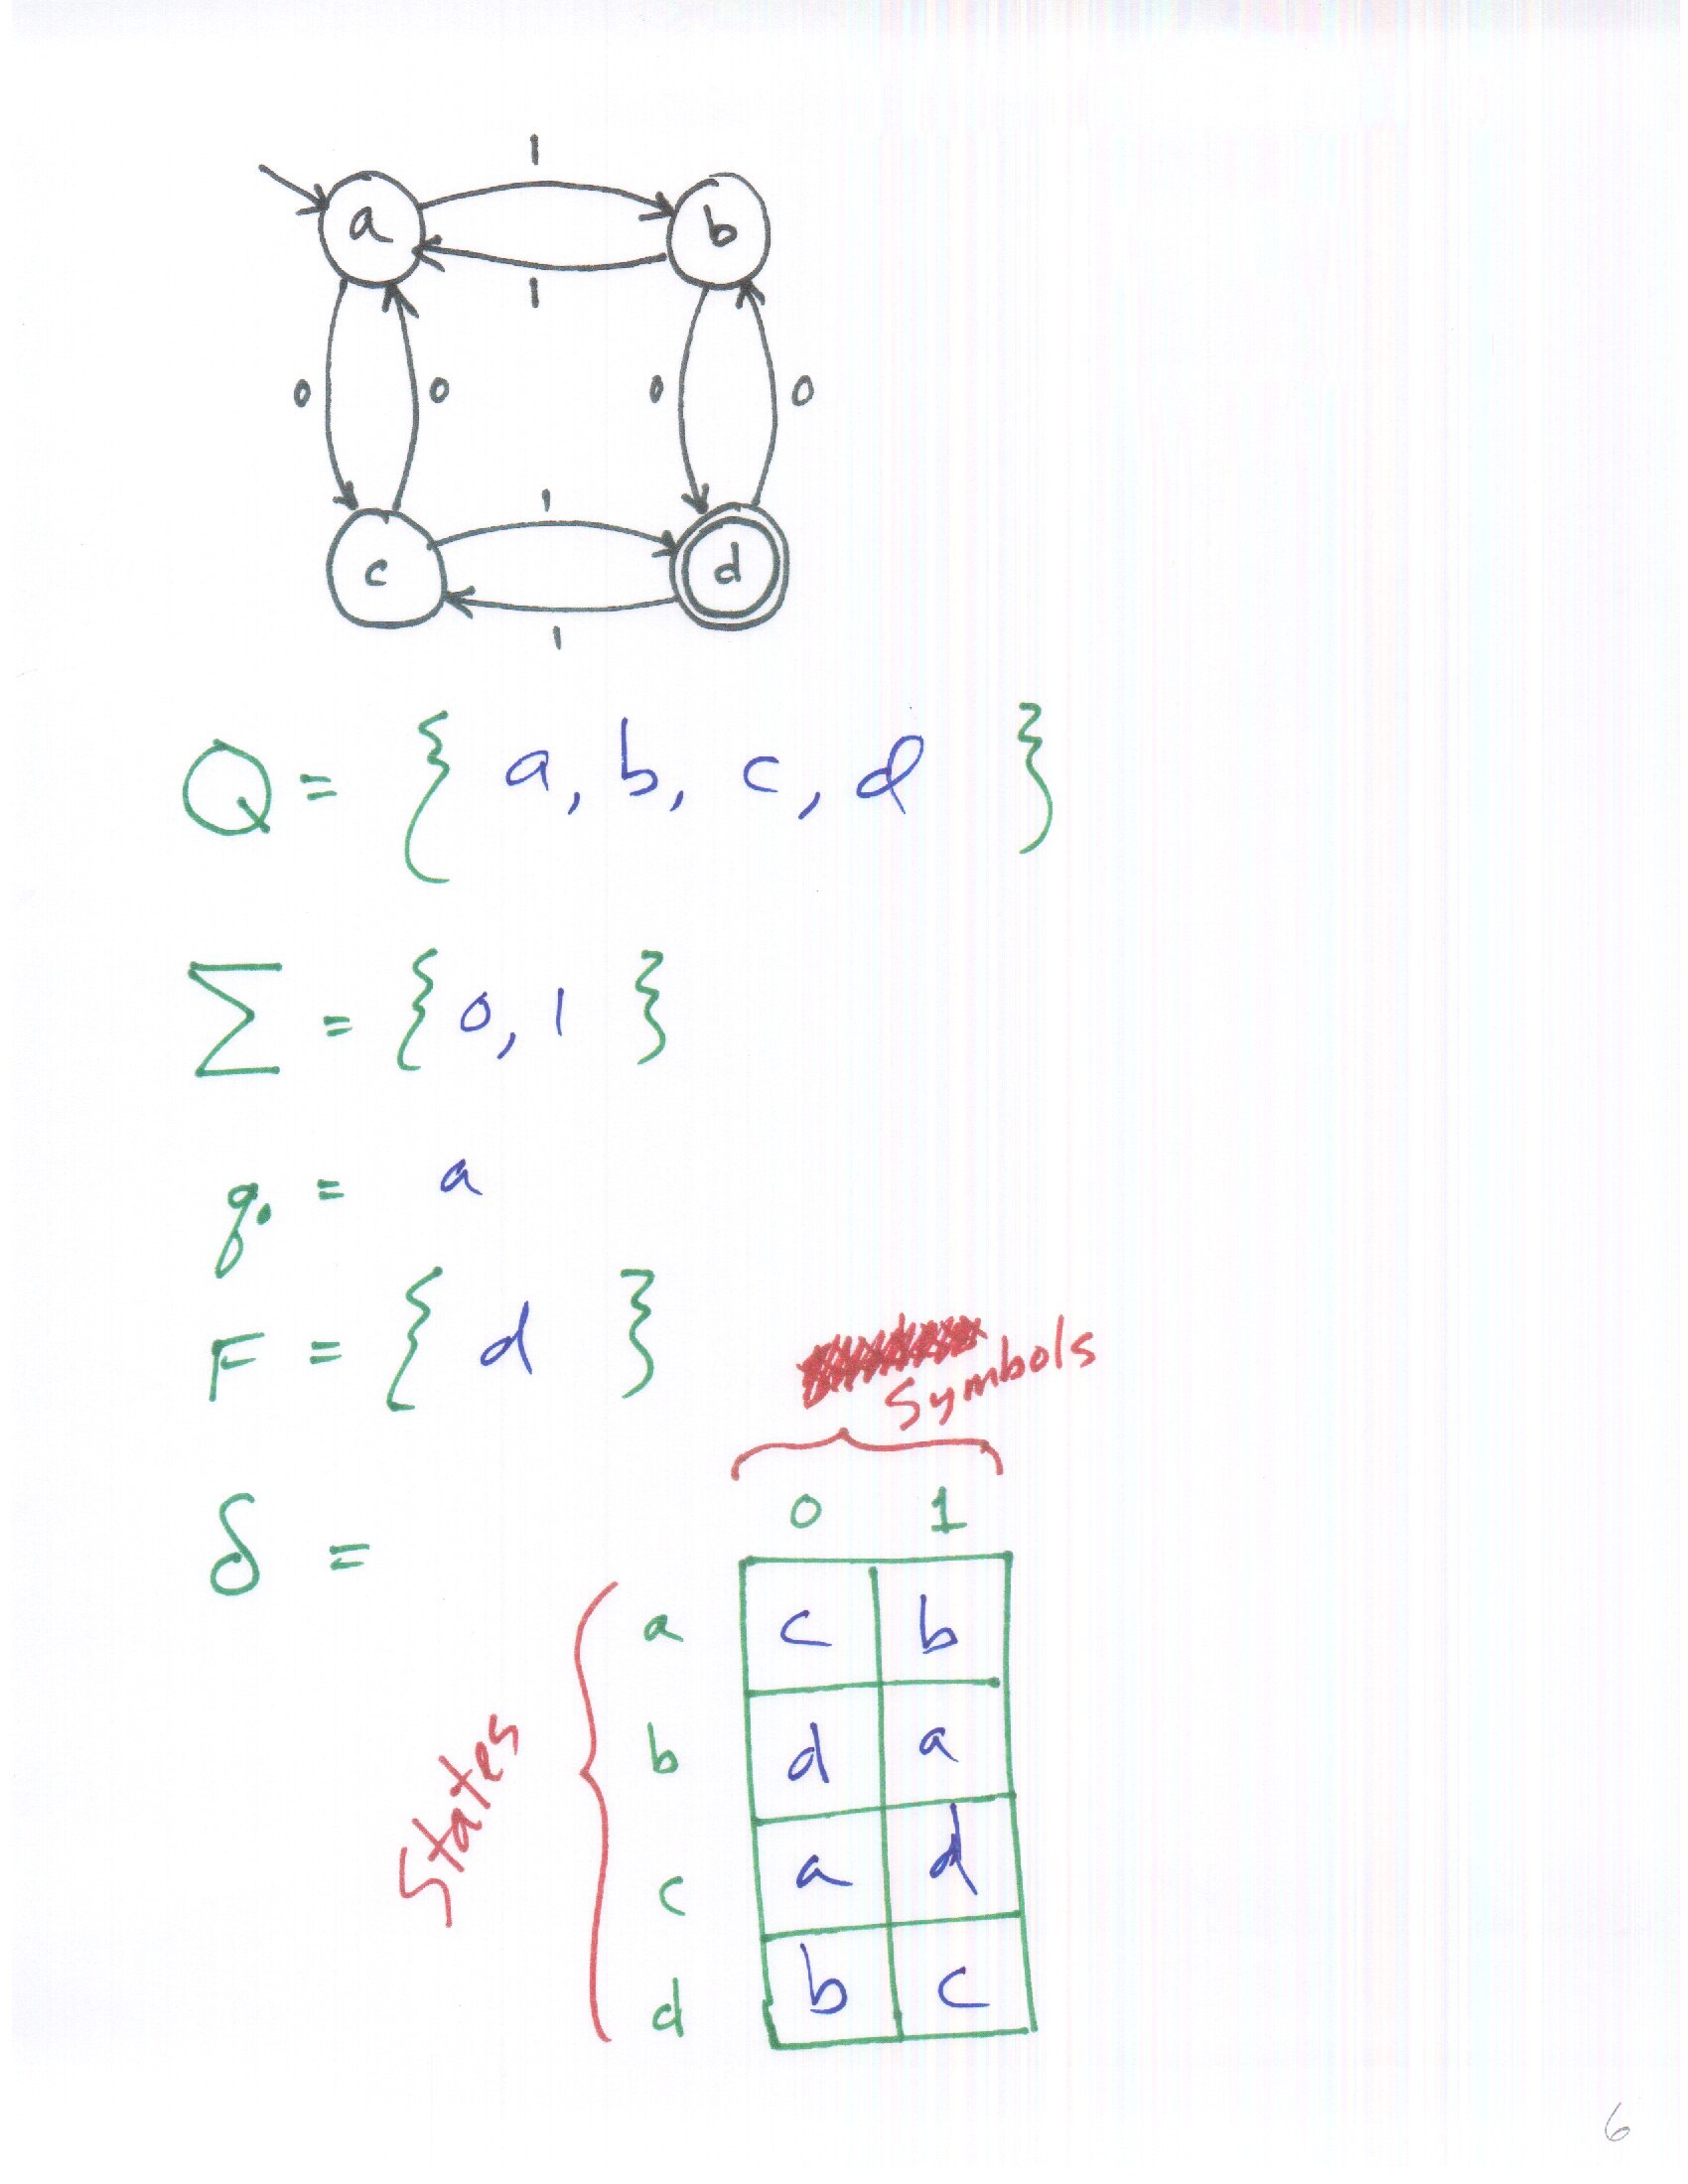 1
a b
1
0 0 0 0
1
c d
1
Q = { a, b, c, d }
Σ = { 0, 1 }
q₀ = a
F = { d }
Symbols
δ =
0 1
States
a c b
b d a
c a d
d b c
6